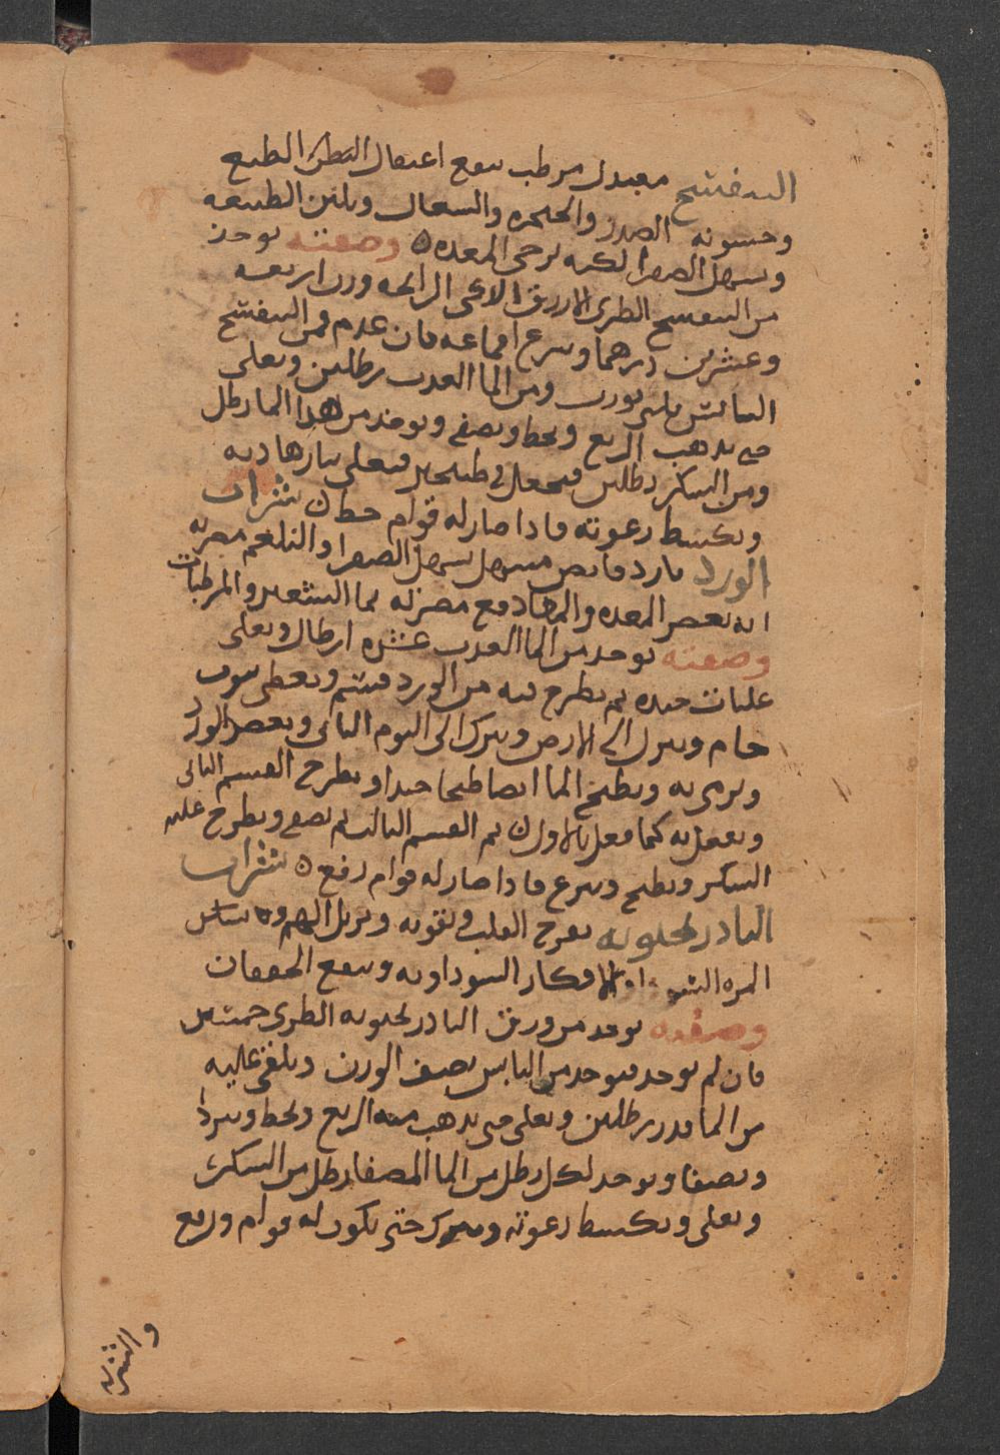 البنفسج معتدل مرطب ينفع اعتقال البطن الطبع
وخشونه الصدر والحنجره والسعال ويلين الطبيعه
ويسهل الصفرا لكنه يرخي المعده ٥ وصفته يوخذ
من البنفسج الطري الازرق الذكي الرايحه وزن اربعه
وعشرين درهما وينزع اقماعه فان عدم فمن البنفسج
اليابس ومن الما العذب رطلين ويغلى
حتى يذهب الربع ويحط ويصفى ويوخذ من هذا الما رطل
ومن السكر رطلين فيجعل في طنجير فيغلى بنار هاديه
ويكشط رغوته فاذا صار له قوام حط ٥ شراب
الورد بارد قابض مسهل يسهل الصفرا والبلغم مضرته
انه يعصر المعده والمعا دفع مضرته بما الشعير والمرطبات
وصفته يوخذ من الما العذب عشره ارطال ويغلى
غليات جيده ثم يطرح فيه من الورد قسم ويغطى بثوب
خام وينزل الى الارض ويترك الى اليوم الثاني ويعصر الورد
ويرمى به ويطبخ الما ايضا طبخا جيدا ويطرح القسم الثاني
ويعمل به كما فعل بالاول ٥ ثم القسم الثالث ثم يصفى ويطرح عليه
السكر ويطبخ وينزع فاذا صار له قوام رفع ٥ شراب
البادرنجبويه يفرح القلب ويقويه ويزيل الهم و
المره السودا والافكار السوداويه وينفع الخفقان
وصفته يوخذ من ورق البادرنجبويه الطري خمسين
فان لم يوجد فيوخذ من اليابس نصف الوزن ويلقى عليه
من الما قدر رطلين ويغلى حتى يذهب منه الربع ويحط ويبرد
ويصفا ويوخذ لكل رطل من الما المصفا رطل من السكر
ويغلى ويكشط رغوته ويحرك حتى يكون له قوام ورفع
والشربه